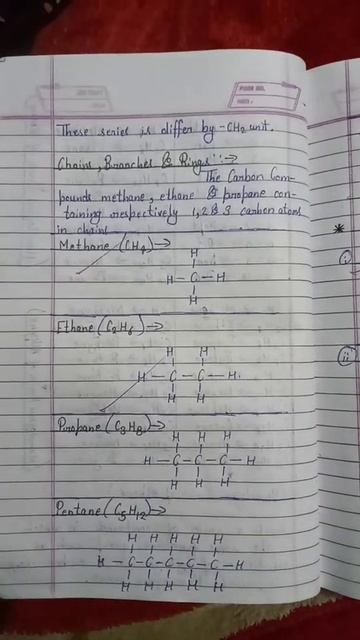 PAGE NO.
DATE:
These series is differ by -CH2 unit.
Chains, Branches & Rings :->
The Carbon Com-
pounds methane, ethane & propane con-
taining respectively 1, 2 & 3 carbon atoms
in chains
Methane (CH4)->
H
H-C-H
H
Ethane (C2H6)->
H H
H-C-C-H.
H H
Propane (C3H8)->
H H H
H-C-C-C-H
H H H
Pentane (C5H12)->
H H H H H
H-C-C-C-C-C-H
H H H H H
*
i
ii